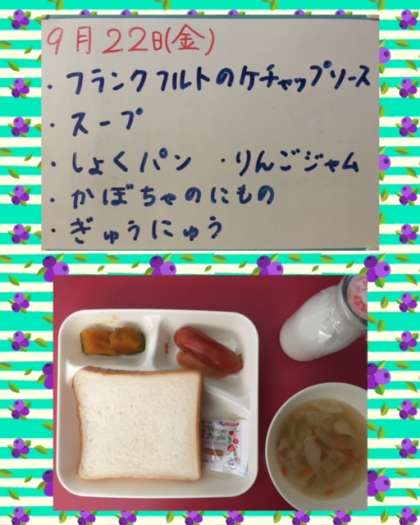 9月22日(金)
・フランクフルトのケチャップソース
・スープ
・しょくパン ・りんごジャム
・かぼちゃのにもの
・ぎゅうにゅう